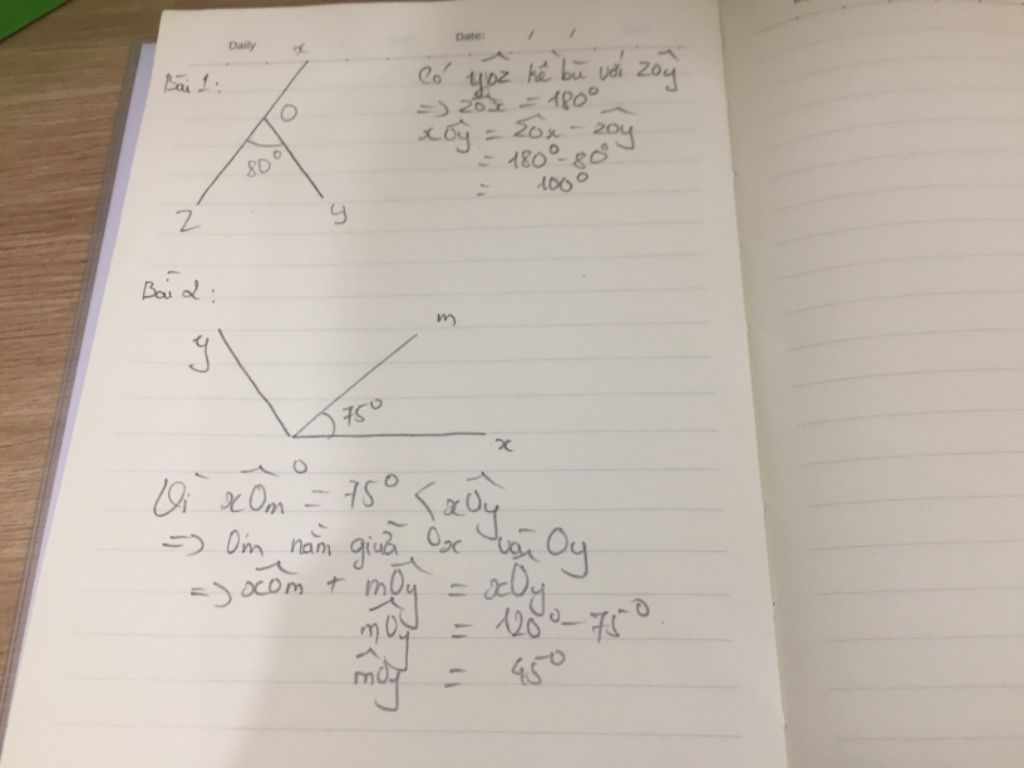 Daily
Date: / /
Bài 1:
x
O
80°
Z
y
Có yoz kề bù với zoy
=> zox = 180°
xOy = zOx - zOy
= 180° - 80°
= 100°
Bài 2:
y
m
75°
x
O
Vì xOm = 75° < xOy
=> Om nằm giữa Ox và Oy
=> xOm + mOy = xOy
mOy = 120° - 75°
mOy = 45°